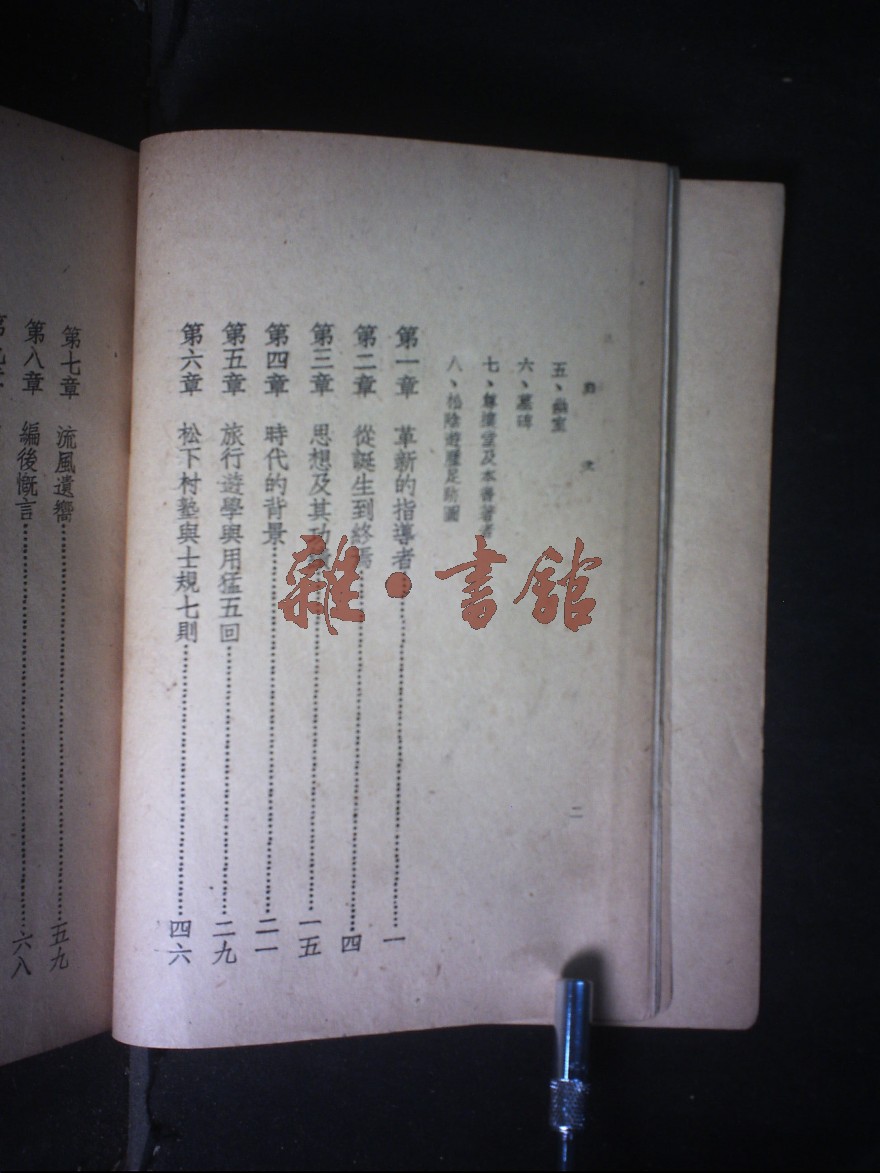 目次
五、幽室
六、墓碑
七、尊攘堂及本書著者
八、松陰遊歷足跡圖
第一章 革新的指導者……一
第二章 從誕生到終焉……四
第三章 思想及其功績……一五
第四章 時代的背景……二一
第五章 旅行遊學與用猛五回……二九
第六章 松下村塾與士規七則……四六
二
第七章 流風遺嚮……五九
第八章 編後慨言……六八
雜·書館